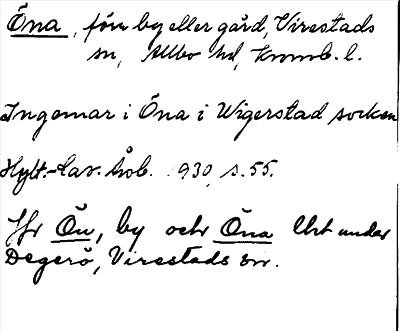 Öna, förr by eller gård, Virestads
sn, Allbo hd, Kronob. l.
Ingemar i Öna i Wigerstad socken
Hylt.-Cav. Åsb. 1930, s. 55.
Jfr Ön, by och Öna lht under
Degerö, Virestads sn.